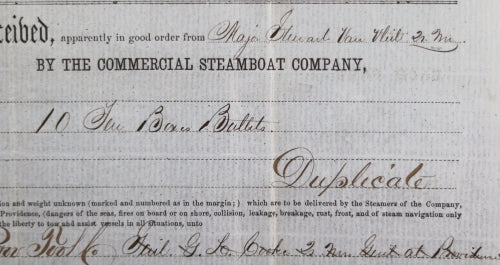 ceived, apparently in good order from Major Stewart Van Vliet Q. M.
BY THE COMMERCIAL STEAMBOAT COMPANY,
10 Ten Boxes Bullets.
Duplicate
tion and weight unknown (marked and numbered as in the margin; ) which are to be delivered by the Steamers of the Company,
Providence, (dangers of the seas, fires on board or on shore, collision, leakage, breakage, rust, frost, and of steam navigation only
the liberty to tow and assist vessels in all situations, unto
Tool Co G. Q. M. Genl at Providence